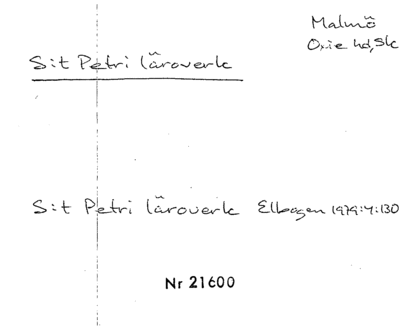 Malmö
Oxie hd, Sk
S:t Petri läroverk
S:t Petri läroverk Elbogen 1979:4:130
Nr 21600